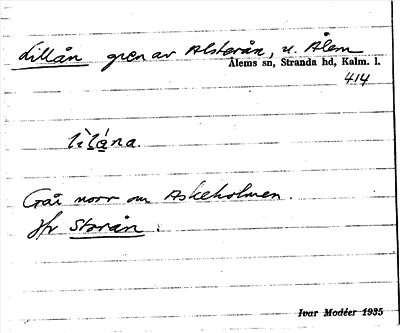 Lillån gren av Alsterån, v. Ålem
Ålems sn, Stranda hd, Kalm. l.
414
lìlána.
Går norr om Askeholmen.
Jfr Storån.
Ivar Modéer 1935